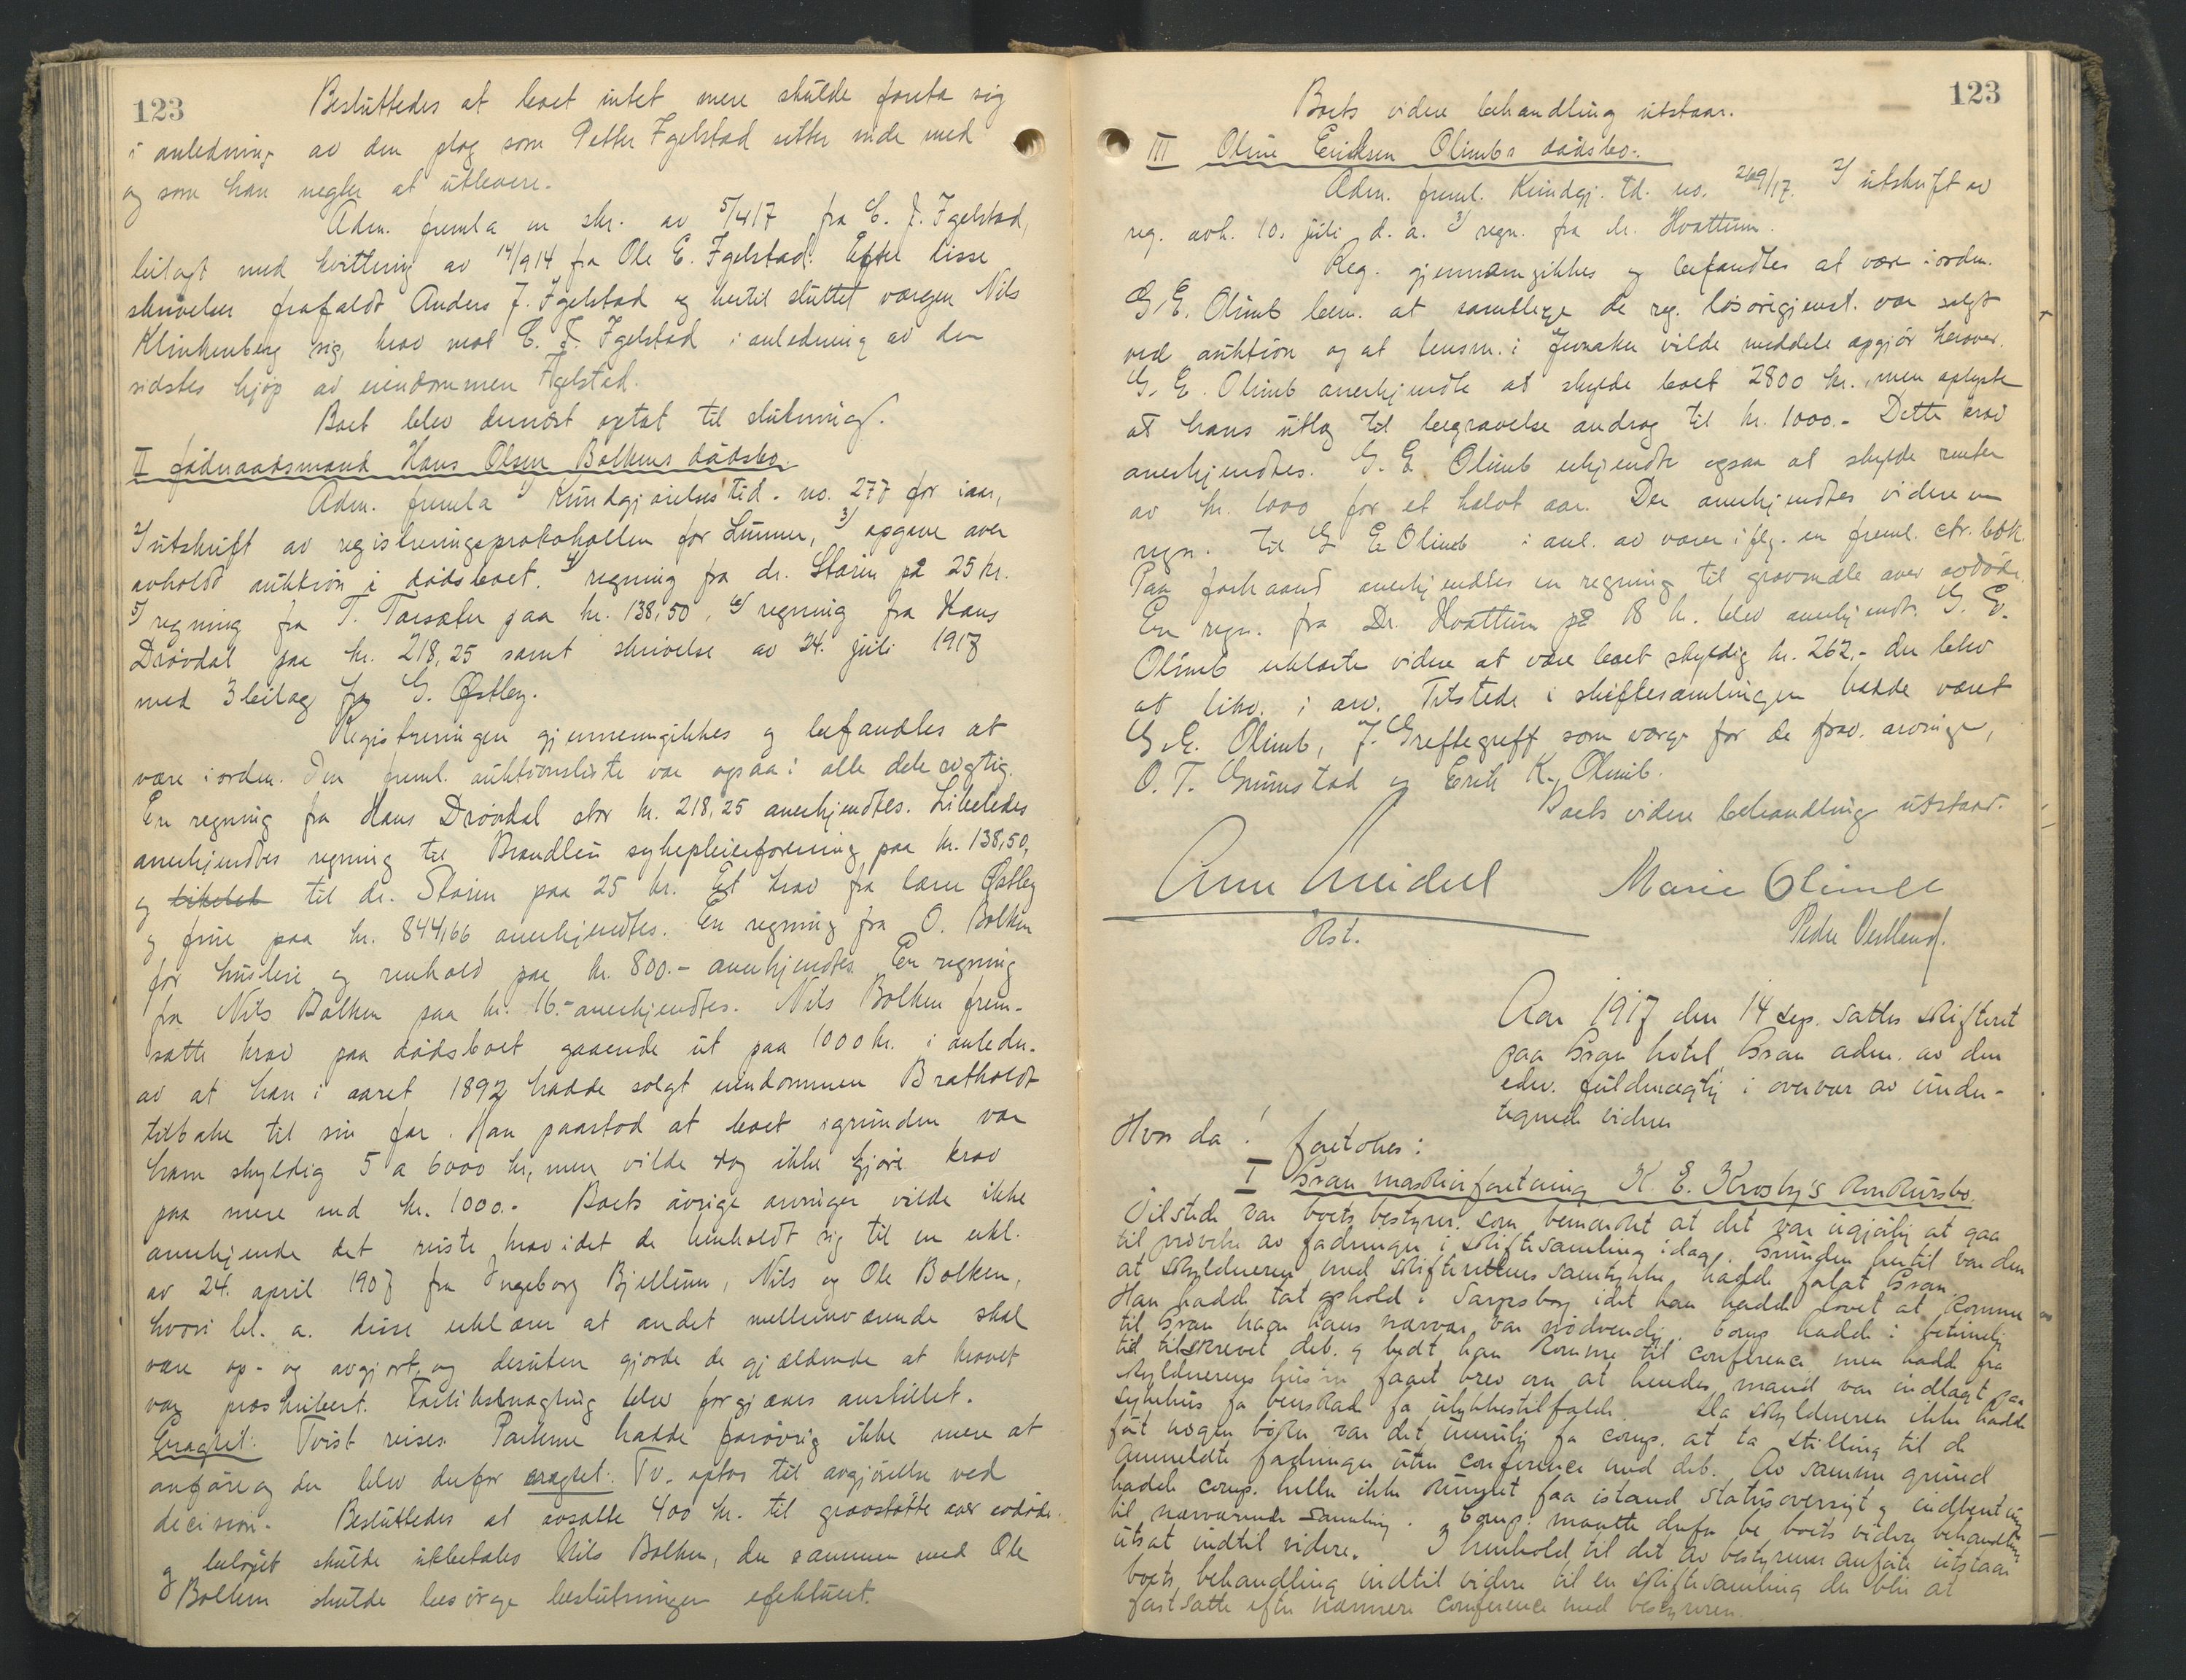 123
Besluttedes at boet intet mere skulde foreta sig
i anledning av den plog som Petter Igelstad sitter inde med
og som han negter at utlevere.
Adm. fremla en skr. av 5/4 17 fra C. J. Igelstad,
bilagt med kvittering av 14/9 14 fra Ole E. Igelstad. Efter disse
skrivelser frafaldt Anders J. Igelstad og hertil sluttet værgen Nils
Klinkenberg sig, krav mot C. J. Igelstad i anledning av den
sidstes kjøp av eiendommen Igelstad.
Boet blev dernæst optat til slutning.
II fødraadsmand Hans Olsen Bolkens dødsbo.
Adm. fremla 1/ Kundgjørelsestid. no. 277 for iaar,
2/ utskrift av registreringsprotokollen for Lunner, 3/ opgave over
avholdt auktion i dødsboet. 4/ regning fra dr. Støren på 25 kr.
5/ regning fra T. Torsæter paa kr. 138,50, 6/ regning fra Hans
Drøvdal paa kr. 218,25 samt skrivelse av 24. juli 1917
med 3 bilag fra G. Østby.
Registreringen gjennemgikkes og befandtes at
være i orden. Den freml. auktionsliste var ogsaa i alle dele rigtig.
En regning fra Hans Drøvdal stor kr. 218,25 anerkjendtes. Likeledes
anerkjendtes regning til Brandbu sykepleieforening paa kr. 138,50,
og til dr. Støren paa 25 kr. Et krav fra lærer Østby
og frue paa kr. 844,66 anerkjendtes. En regning fra O. Bolken
for husleie og renhold paa kr. 800.- anerkjendtes. En regning
fra Nils Bolken paa kr. 16.- anerkjendtes. Nils Bolken frem-
satte krav paa dødsboet gaaende ut paa 1000 kr. i anledn.
av at han i aaret 1892 hadde solgt eiendommen Bratholdt
tilbake til sin far. Han paastod at boet igrunden var
ham skyldig 5 a 6000 kr, men vilde dog ikke gjøre krav
paa mere end kr. 1000.- Boets øvrige arvinger vilde ikke
anerkjende det reiste krav idet de henholdt sig til en erkl.
av 24. april 1907 fra Ingeborg Bjellum, Nils og Ole Bolken,
hvori bl. a. disse erklærer at andet mellemværende skal
være op- og avgjort, og desuten gjorde de gjældende at kravet
var præskribert. Forliksmægling blev forgjæves anstillet.
Eragtet: Tvist reises. Parterne hadde forøvrig ikke mere at
anføre og der blev derfor eragtet: Tv. optas til avgjørelse ved
decision. Besluttedes at avsætte 400 kr. til gravstøtte over avdøde
og beløpet skulde utbetales Nils Bolken, der sammen med Ole
Bolken skulde besørge beslutningen effektuert.
123
Boets videre behandling utstaar.
III Oline Eriksen Olimbs dødsbo.
Adm. freml. Kundgj. td. no. 269/17. 2/ utskrift av
reg. avh. 10. juli d. a. 3/ regn. fra dr. Hvattum.
Reg. gjennemgikkes og befandtes at være i orden.
G. E. Olimb bem. at samtlige de reg. løsøregjenst. var solgt
ved auktion og at lensm. i Jevnaker vilde meddele opgjør herover.
G. E. Olimb anerkjendte at skylde boet 2800 kr., men oplyste
at hans utlæg til begravelse androg til kr. 1000.- Dette krav
anerkjendtes. G. E. Olimb erkjendte ogsaa at skylde renter
av kr. 1000 for et halvt aar. Der anerkjendtes videre en
regn. til G E Olimb i anl. av varer iflg. en freml. ctr. bok.
Paa forhaand anerkjendtes en regning til gravmæle over avdøde.
En regn. fra Dr. Hvattum på 18 kr. blev anerkjendt. G. E.
Olimb erklærte videre at være boet skyldig kr. 262,- der blev
at likv. i arv. Tilstede i skiftesamlingen hadde været
G. E. Olimb, J. Greftegreff som værge for de frav. arvinger,
O. T. Grimstad og Erik K. Olimb.
Boets videre behandling utstaar.
Marie Olimb
Kst.
Peder Vestland.
Aar 1917 den 14 sep. sattes skifteret
paa Gran hotel, Gran adm. av den
edsv. fuldmægtig i overvær av under-
tegnede vidner
Hvor da! foretokes:
I Gran maskinforretning K. E. Krosby's konkursbo.
Tilstede var boets bestyrer, som bemerket at det var ugjørlig at gaa
til prøvelse av fordringer i skiftesamling idag. Grunden hertil var den
at skyldneren med skifterettens samtykke hadde forlat Gran.
Han hadde tat ophold i Sarpsborg idet han hadde lovet at komme
til Gran naar hans nærvær var nødvendig. Comp. hadde i betimelig
tid tilskrevet deb. og bedt han komme til conference men hadde fra
skyldnerens hustru faaet brev om at hendes mand var indlagt paa
sykehus for benskad for ulykkestilfælde. Da skyldneren ikke hadde
ført nogen bøker var det umulig for comp. at ta stilling til de
anmeldte fordringer uten conference med deb. Av samme grund
hadde comp. heller ikke kunnet faa istand statusoversigt og indberetning
til nærværende samling. Comp. maatte derfor be boets videre behandling
utsat indtil videre. I henhold til det av bestyreren anførte utstaar
boets behandling indtil videre til en skiftesamling der blir at
fastsætte efter nærmere conference med bestyreren.